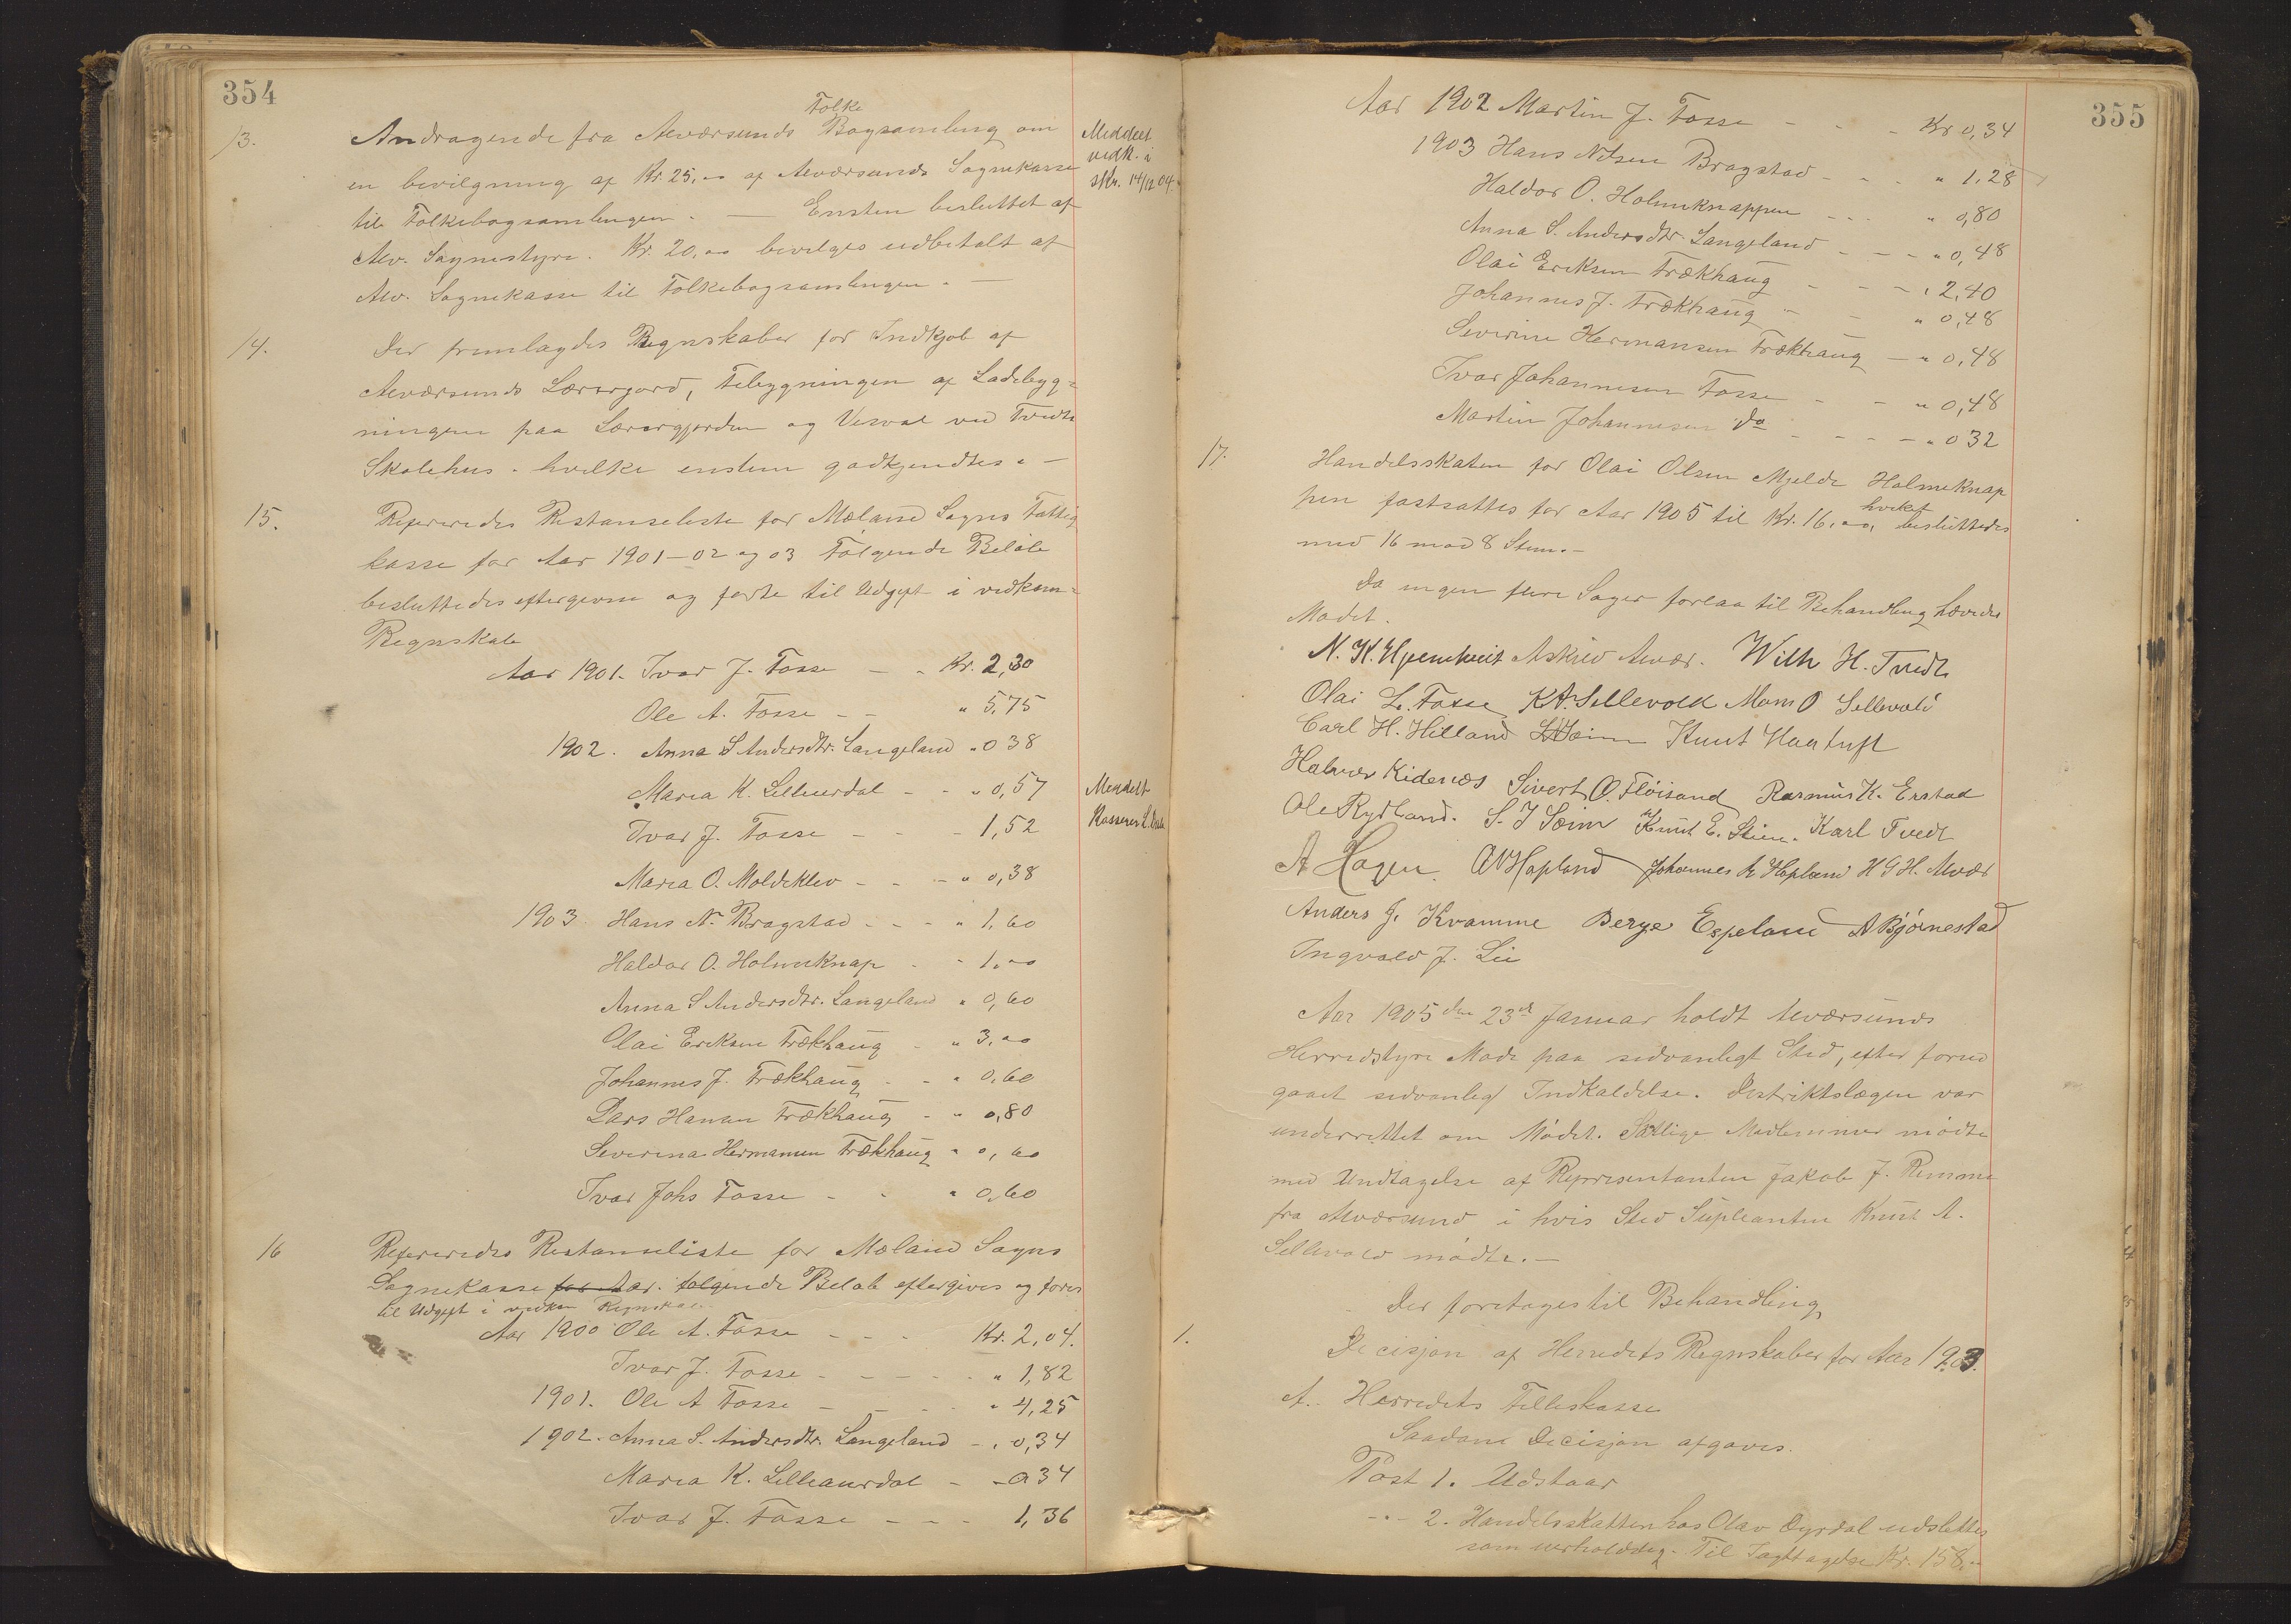 354
Folke
13. Andragende fra Alværsunds Bogsamling om
en bevilgning af Kr. 25,00 af Alværsunds Sognekasse
til Folkebogsamlingen. — Ensten besluttet af
Alv. Sognestyre. Kr. 20,00 bevilges udbetalt af
Alv. Sognekasse til Folkebogsamlingen. —
Meddelt
vedk. i
skr. 14/12 04.
14. Der fremlagdes Regnskaber for Indkjøb af
Alværsunds Lærergard, Tilbygningen af Ladebyg=
ningen paa Lærergjorden og Vedval ved Tvedte
Skolehus. hvilke enstem godkjendtes. —
15. Refereredes Restanseliste for Mæland Sogns Fattig
kasse for Aar 1901-02 og 03 Følgende Beløb
besluttedes eftergivne og førte til Udgift i vedkom=
Regnskab
Aar 1901. Ivar J. Fosse — - Kr. 2,30
Ole A. Fosse - - " 5,75
1902. Anna S Andersdtr. Langeland " 0 38
Maria K. Lilleurdal - - " 0,57
Ivar J. Fosse - - - 1,52
Maria O. Moldeklev - - - " 0,38
Meddelt
Kasserer L.
1903 Hans N. Bragstad - - - " 1,60
Haldor O. Holmeknap - - 1,00
Anna S Andersdtr. Langeland " 0,60
Olai Eriksen Trækhaug - " 3,00
Johannes J. Trækhaug - - " 0,60
Lars Hansen Trækhaug - " 0,80
Severina Hermansen Trækhaug " 0,60
Ivar Johs Fosse - - " 0,60
16 Refereredes Restanseliste for Mæland Sogns
Sognekasse for Aar. følgende Beløb eftergives og føres
til Udgift i vedkom Regnskab
Aar 1900 Ole A. Fosse - - - Kr. 2,04.
Ivar J. Fosse - - - - - " 1,82
1901. Ole A Fosse - - - - " 4,25
1902. Anna S. Andersdtr. Langeland - " 0,34
Maria K. Lilleaurdal - - 0 34
Ivar J. Fosse - - - 1,36
355
Aar 1902 Martin J. Fosse - - - Kr 0,34
1903 Hans Nilsen Bragstad - - - " 1,28
Haldor O. Holmeknappen - - - " 0,80
Anna S. Andersdtr. Langeland - - - " 0,48
Olai Eriksen Trækhaug - - - " 2,40
Johannes J. Trækhaug - - " 0,48
Severine Hermansen Trækhaug — " 0,48
Ivar Johannesen Fosse - - " 0,48
Martin Johannesen Do - - - - " 0 32
17. Handelsskaten for Olai Olsen Mjelde Holmeknap
pen fastsattes for Aar 1905 til Kr. 16,00, hvilket besluttedes
med 16 mod 8 Stem. -
Da ingen flere Sager forlaa til Behandling hævedes
Mødet.
N. K. Askild Alvær. Wilh H. Tvedt
Olai L. Fosse K A. Sellevold Mons O Sellevold
Carl H. Hilland Knut Haatuft
Halvor Kidenæs Sivert O. Fløisand Rasmus K. Erstad
Ole Rydland. S. J Seim Knut E. Karl Tvedt
A Hagen. A N Hopland Johannes K Hopland H G H. Alvær
Anders J. Kvamme Berge Espeland A Bjørnestad
Ingvald J. Lie
Aar 1905 den 23de Januar holdt Alværsunds
Herredstyre Møde paa sedvanligt Sted, efter forud
gaaet sedvanlig Indkaldelse. Distriktslægen var
underrettet om Mødet. Samtlige Medlemmer mødte
med Undtagelse af Representanten Jakob J. Remme
fra Alværsund i hvis Sted Supleanten Knut A.
Sellevold mødte. —
Der foretoges til Behandling
1. Decisjon af Herredets Regnskaber for Aar 1903.
A. Herredets Felleskasse
Saadan Decisjon afgaves.
Post 1. Udstaar
-"- 2. Handelsskatten hos Olav Dyrdal udslettes
som uerholdelig. Til Iagttagelse Kr. 158,00